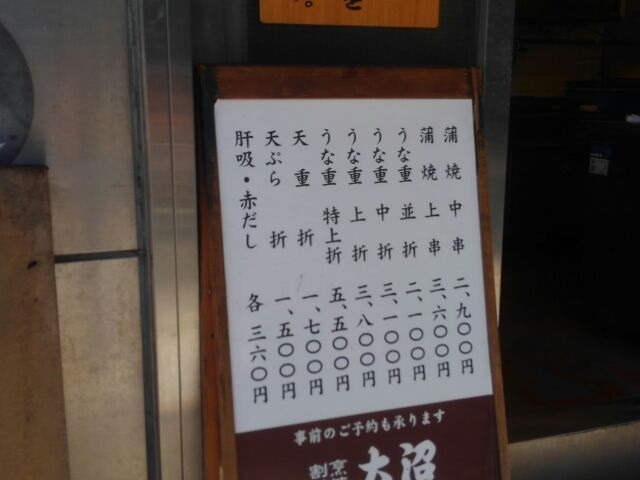 蒲焼中串 二、九〇〇円
蒲焼上串 三、六〇〇円
うな重並折 二、一〇〇円
うな重中折 三、一〇〇円
うな重上折 三、八〇〇円
うな重特上折 五、五〇〇円
天重折 一、七〇〇円
天ぷら折 一、五〇〇円
肝吸・赤だし 各三六〇円
事前のご予約も承ります
割烹
大沼